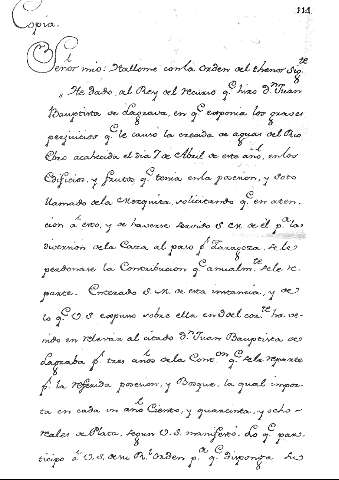 114
Copia.
Señor mio: Hallome con la orden del thenor sig.te
He dado, al Rey del recurso q.e hizo D.n Juan
Bauptista de Lagrava, en q.e exponia los graves
perjuicios q.e le causo la crecida de aguas del Rio
Ebro acahecida el dia 7 de Abril de este año, en los
Edificios, y frutos q.e tenia en la posesion, y soto
llamado de la Mezquita, solicitando q.e en aten-
cion a esto, y de haverse servido S. M. de él p.a la
diversion de la Caza al paso p.r Zaragoza, se le
perdonase la Contribucion q.e anualm.te se le re-
parte. Enterado S. M. de esta instancia, y de
lo q.e V. S. expuso sobre ella en 3 del cor.te ha ve-
nido en relevar al citado D.n Juan Bauptista de
Lagraba p.r tres años de la Cont.on q.e se le reparte
p.r la referida posesion, y Bosque, la qual impor-
ta en cada un año Ciento, y quarenta, y ocho
reales de Plata, segun V. S. manifestó. Lo q.e par-
ticipo a V. S. de su R.l orden p.a q.e disponga se